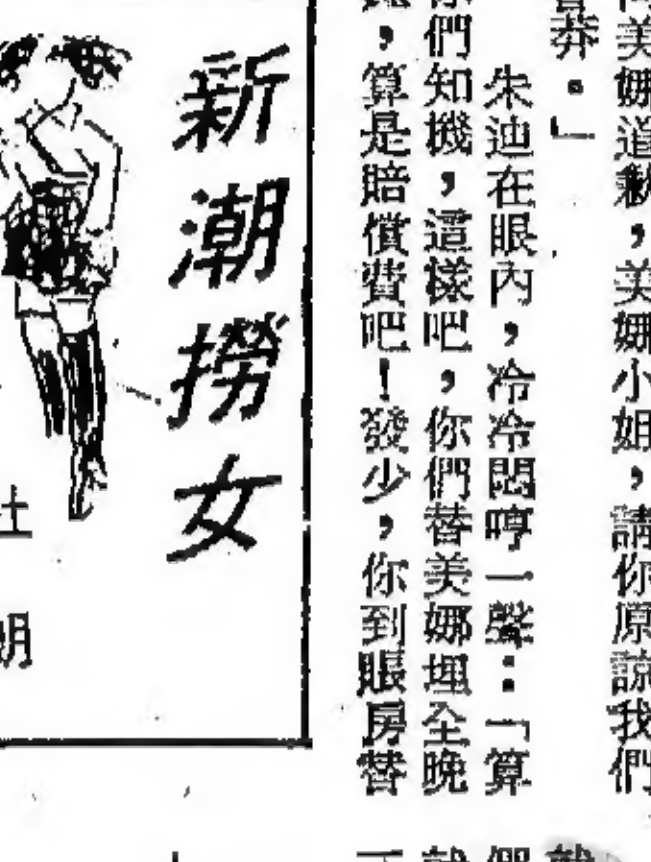 美娜道歉，美娜小姐，請你原諒我們
莽。」
朱迪在眼內，冷冷悶哼一聲：「算
你們知機，這樣吧，你們替美娜埋全晚
，算是賠償費吧！發少，你到賬房替
新潮撈女